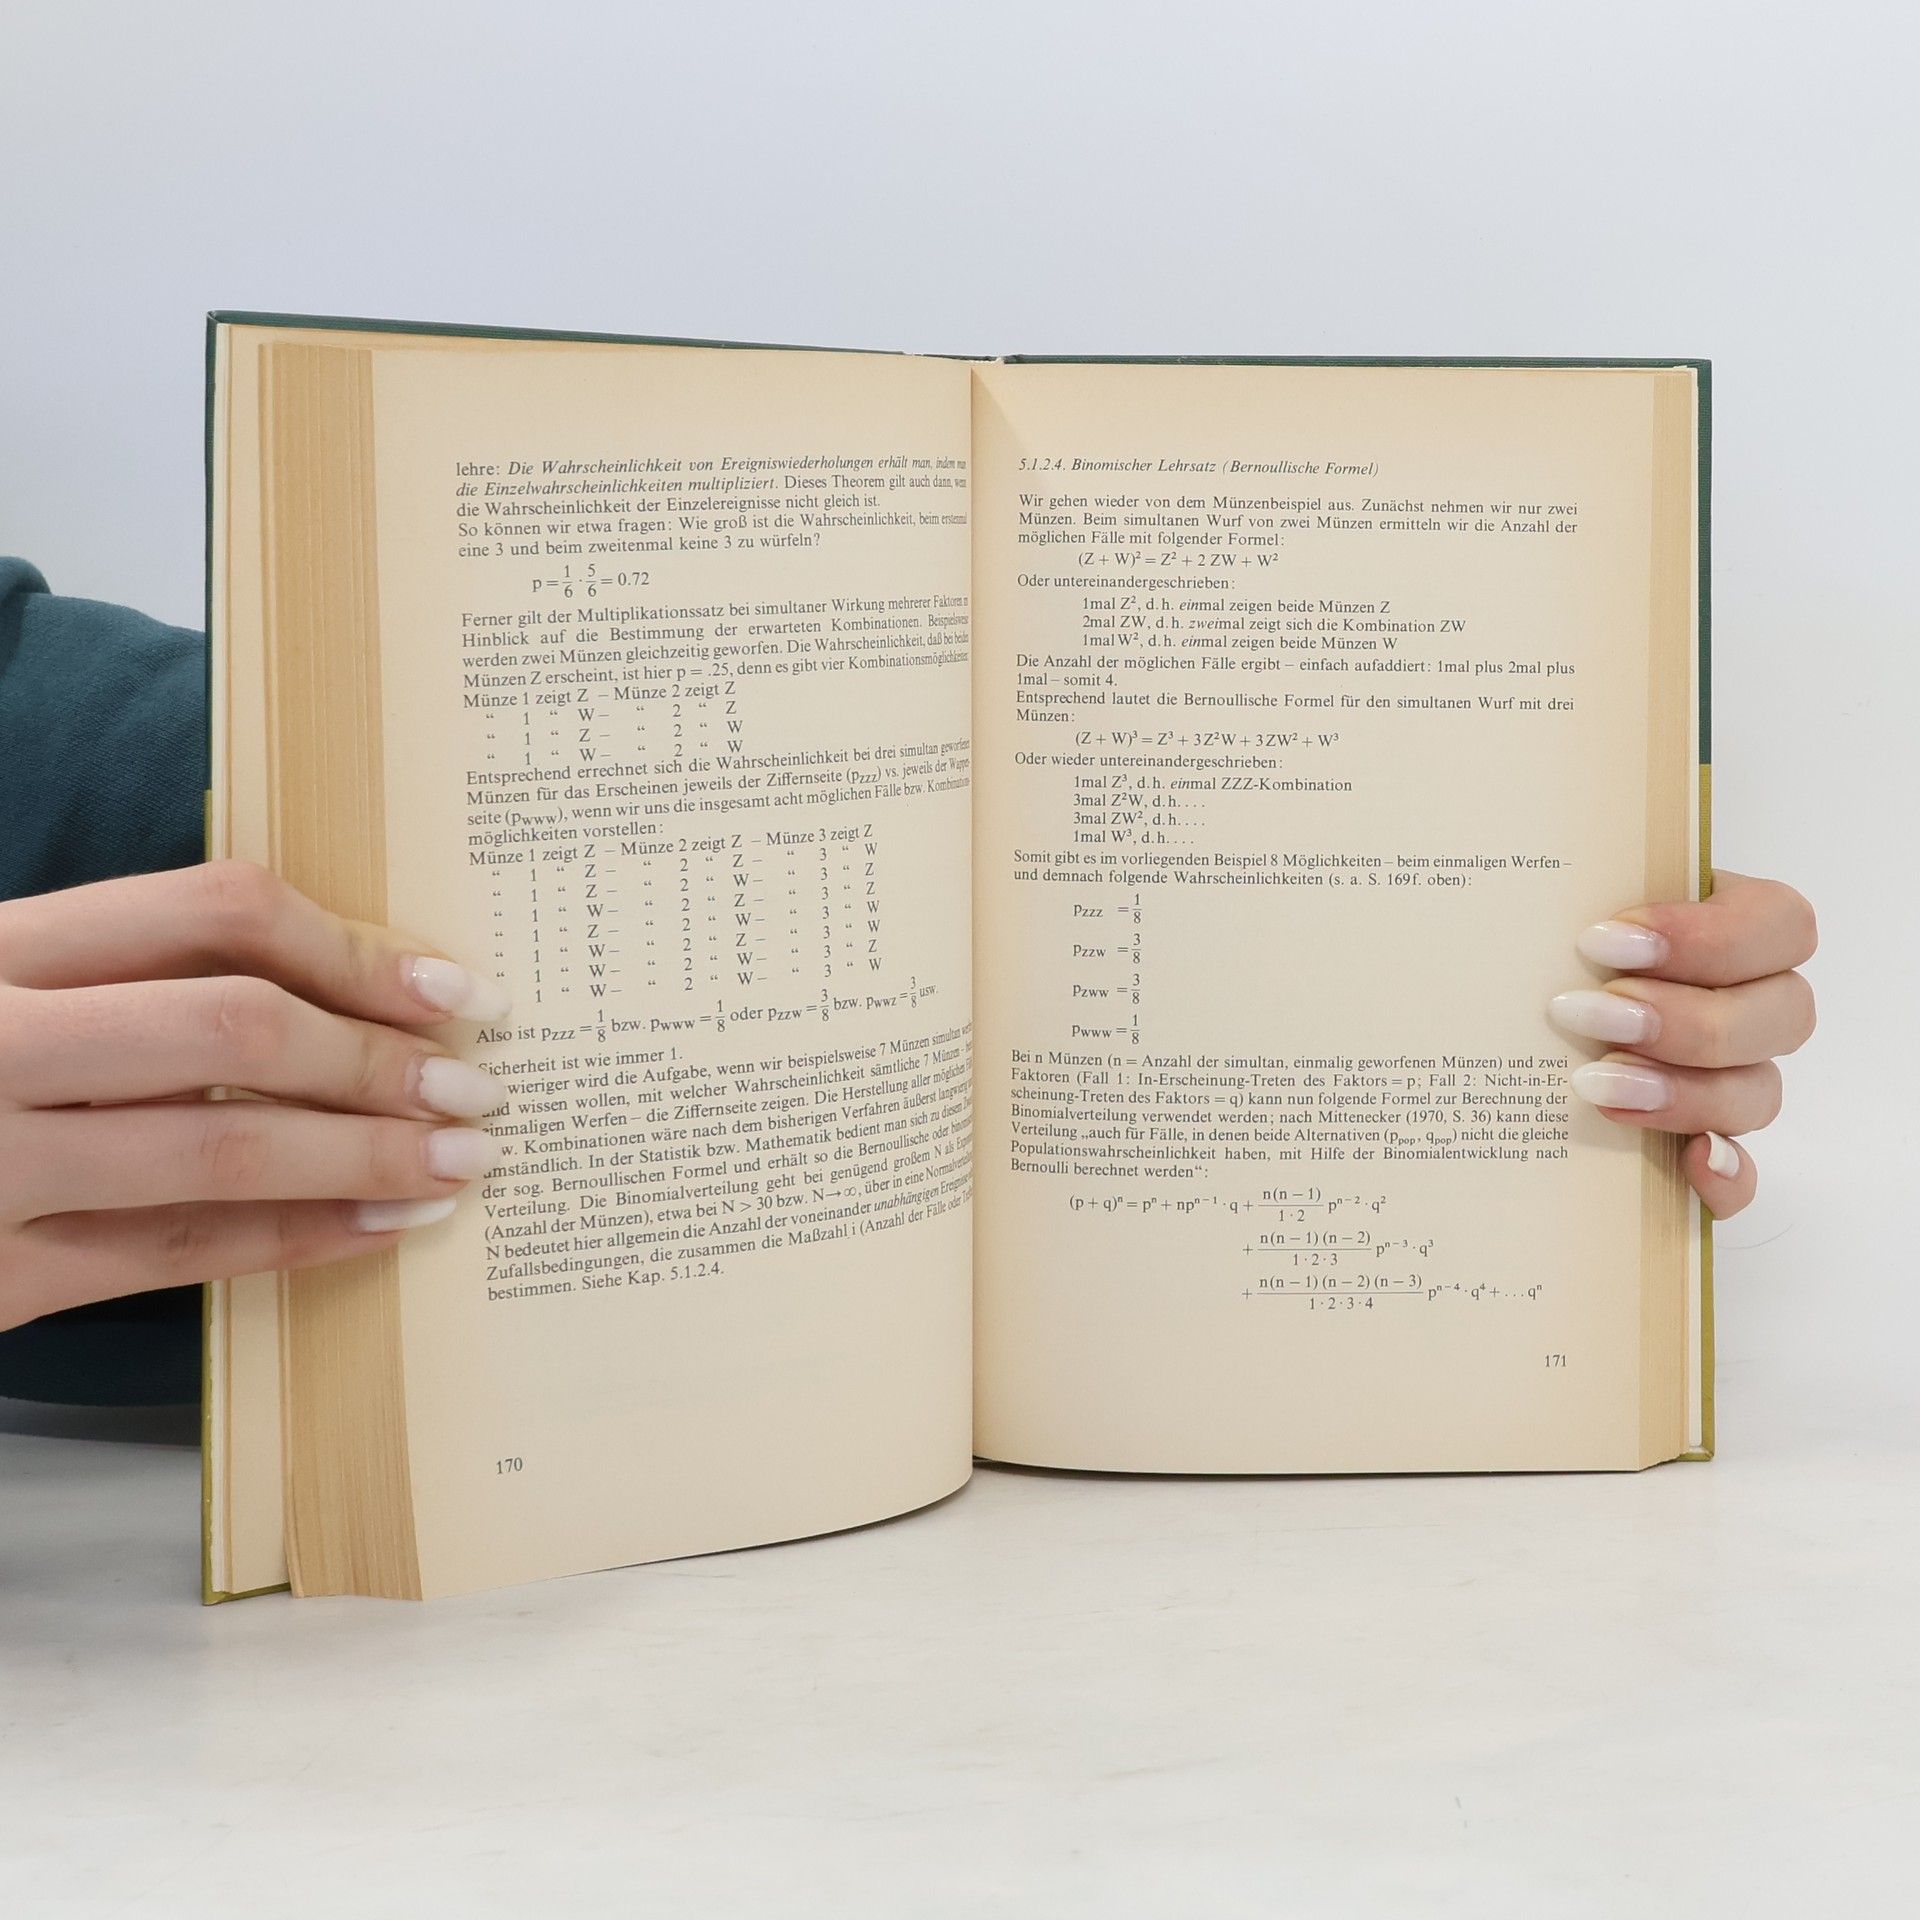 lehre: Die Wahrscheinlichkeit von Ereigniswiederholungen erhält man, indem man
die Einzelwahrscheinlichkeiten multipliziert. Dieses Theorem gilt auch dann, wenn
die Wahrscheinlichkeit der Einzelereignisse nicht gleich ist.
So können wir etwa fragen: Wie groß ist die Wahrscheinlichkeit, beim erstenmal
eine 3 und beim zweitenmal keine 3 zu würfeln?
p = 1/6 · 5/6 = 0.72
Ferner gilt der Multiplikationssatz bei simultaner Wirkung mehrerer Faktoren
Hinblick auf die Bestimmung der erwarteten Kombinationen. Beispielsweise
werden zwei Münzen gleichzeitig geworfen. Die Wahrscheinlichkeit, daß bei beiden
Münzen Z erscheint, ist hier p = .25, denn es gibt vier Kombinationsmöglichkeiten:
Münze 1 zeigt Z – Münze 2 zeigt Z
“ 1 “ W – “ 2 “ Z
“ 1 “ Z – “ 2 “ W
“ 1 “ W – “ 2 “ W
Entsprechend errechnet sich die Wahrscheinlichkeit bei drei simultan geworfenen
Münzen für das Erscheinen jeweils der Ziffernseite (pZZZ) vs. jeweils der Wappen-
seite (pWWW), wenn wir uns die insgesamt acht möglichen Fälle bzw. Kombinations-
möglichkeiten vorstellen:
Münze 1 zeigt Z – Münze 2 zeigt Z – Münze 3 zeigt Z
“ 1 “ Z – “ 2 “ Z – “ 3 “ W
“ 1 “ Z – “ 2 “ W – “ 3 “ Z
“ 1 “ W – “ 2 “ Z – “ 3 “ Z
“ 1 “ Z – “ 2 “ W – “ 3 “ W
“ 1 “ W – “ 2 “ Z – “ 3 “ W
“ 1 “ W – “ 2 “ W – “ 3 “ Z
1 “ W – “ 2 “ W – “ 3 “ W
Also ist pZZZ = 1/8 bzw. pWWW = 1/8 oder pZZW = 3/8 bzw. pWWZ = 3/8 usw.
Sicherheit ist wie immer 1.
wieriger wird die Aufgabe, wenn wir beispielsweise 7 Münzen simultan
und wissen wollen, mit welcher Wahrscheinlichkeit sämtliche 7 Münzen –
einmaligen Werfen – die Ziffernseite zeigen. Die Herstellung aller möglichen
w. Kombinationen wäre nach dem bisherigen Verfahren äußerst langwierig
umständlich. In der Statistik bzw. Mathematik bedient man sich zu diesem
der sog. Bernoullischen Formel und erhält so die Bernoullische oder
Verteilung. Die Binomialverteilung geht bei genügend großem N als
(Anzahl der Münzen), etwa bei N > 30 bzw. N→∞, über in eine
N bedeutet hier allgemein die Anzahl der voneinander unabhängigen
Zufallsbedingungen, die zusammen die Maßzahl i (Anzahl der Fälle oder
bestimmen. Siehe Kap. 5.1.2.4.
170
5.1.2.4. Binomischer Lehrsatz (Bernoullische Formel)
Wir gehen wieder von dem Münzenbeispiel aus. Zunächst nehmen wir nur zwei
Münzen. Beim simultanen Wurf von zwei Münzen ermitteln wir die Anzahl der
möglichen Fälle mit folgender Formel:
(Z + W)² = Z² + 2 ZW + W²
Oder untereinandergeschrieben:
1mal Z², d.h. einmal zeigen beide Münzen Z
2mal ZW, d.h. zweimal zeigt sich die Kombination ZW
1mal W², d.h. einmal zeigen beide Münzen W
Die Anzahl der möglichen Fälle ergibt – einfach aufaddiert: 1mal plus 2mal plus
1mal – somit 4.
Entsprechend lautet die Bernoullische Formel für den simultanen Wurf mit drei
Münzen:
(Z + W)³ = Z³ + 3Z²W + 3ZW² + W³
Oder wieder untereinandergeschrieben:
1mal Z³, d.h. einmal ZZZ-Kombination
3mal Z²W, d.h. . . .
3mal ZW², d.h. . . .
1mal W³, d.h. . . .
Somit gibt es im vorliegenden Beispiel 8 Möglichkeiten – beim einmaligen Werfen –
und demnach folgende Wahrscheinlichkeiten (s. a. S. 169f. oben):
pZZZ = 1/8
pZZW = 3/8
pZWW = 3/8
pWWW = 1/8
Bei n Münzen (n = Anzahl der simultan, einmalig geworfenen Münzen) und zwei
Faktoren (Fall 1: In-Erscheinung-Treten des Faktors = p; Fall 2: Nicht-in-Er-
scheinung-Treten des Faktors = q) kann nun folgende Formel zur Berechnung der
Binomialverteilung verwendet werden; nach Mittenecker (1970, S. 36) kann diese
Verteilung „auch für Fälle, in denen beide Alternativen (ppop, qpop) nicht die gleiche
Populationswahrscheinlichkeit haben, mit Hilfe der Binomialentwicklung nach
Bernoulli berechnet werden“:
(p + q)ⁿ = pⁿ + npⁿ⁻¹ · q + n(n − 1)/1 · 2 pⁿ⁻² · q²
+ n(n − 1) (n − 2)/1 · 2 · 3 pⁿ⁻³ · q³
+ n(n − 1) (n − 2) (n − 3)/1 · 2 · 3 · 4 pⁿ⁻⁴ · q⁴ + . . . qⁿ
171